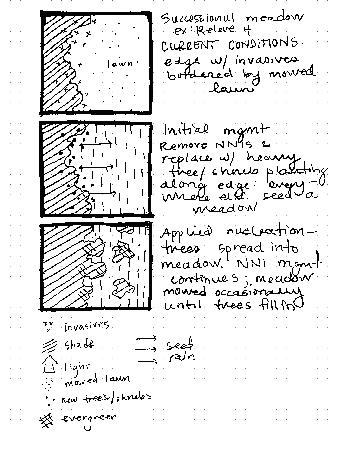 Successional meadow
ex: Releve 4
CURRENT CONDITIONS
edge w/ invasives
bordered by mowed
lawn
lawn
Initial mgmt
Remove NNIs &
replace w/ heavy
tree/shrub planting
along edge: every-
where else seed a
meadow
Applied nucleation-
trees spread into
meadow. NNI mgmt
continues; meadow
mowed occasionally
until trees fill in
invasives
shade
light
mowed lawn
new trees/shrubs
evergreen
seed
rain